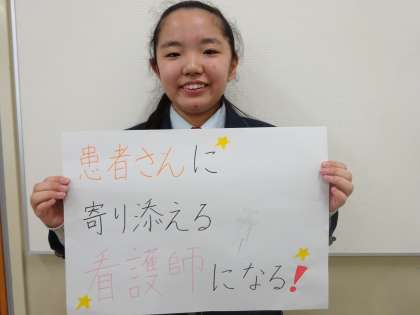 患者さんに
寄り添える
看護師になる!